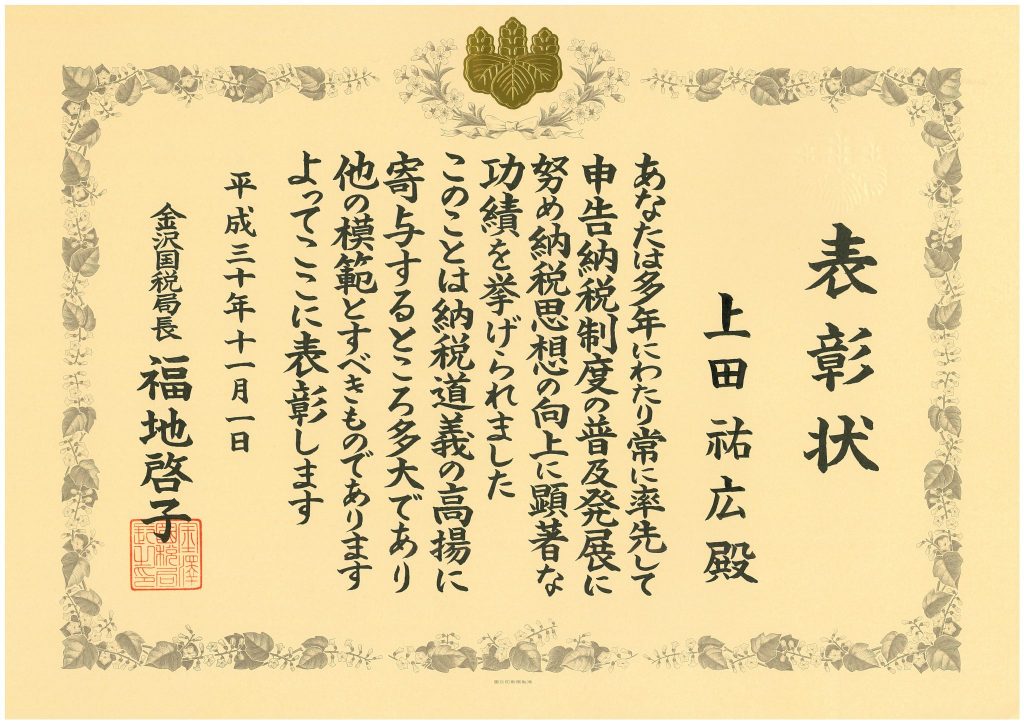 表彰状
上田祐広殿
あなたは多年にわたり常に率先して
申告納税制度の普及発展に
努め納税思想の向上に顕著な
功績を挙げられました
このことは納税道義の高揚に
寄与するところ多大であり
他の模範とすべきものであります
よってここに表彰します
平成三十年十一月一日
金沢国税局長 福地啓子